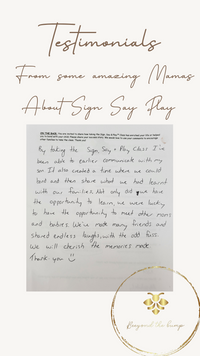 Testimonials
From some amazing Mamas
About Sign Say Play
By taking the Sign, Say + Play Class I've
been able to earlier communicate with my
son. It also created a time where we could
bond and then share what we had learnt
with our families. Not only did we have
the opportunity to learn, we were lucky
to have the opportunity to meet other moms
and babies. We've made many friends and
shared endless laughs, with the odd fuss.
We will cherish the memories made.
Thank you
Beyond the bump